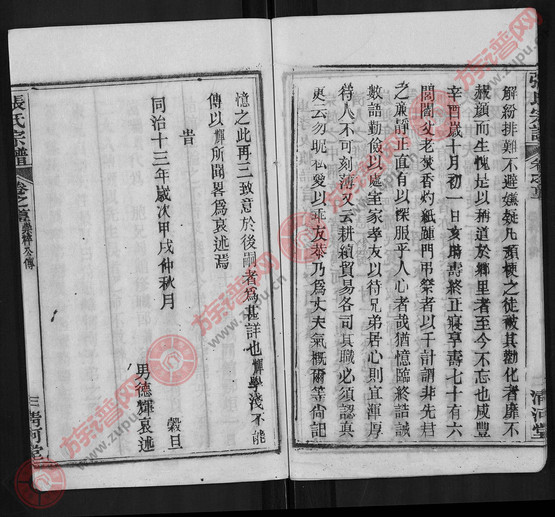 解紛排難不避嫌疑凡頑梗之徒被其勸化者靡不
赧顏而生愧是以稱道於鄉里者至今不忘也咸豐
辛酉歲十月初一日亥時壽終正寢享壽七十有六
閭閻父老焚香灼紙踵門弔祭者以千計謂非先君
之廉靜正直有以深服乎人心者哉猶憶臨終誥誡
數語勤儉以處主家孝友以待兄弟居心則宜渾厚
待人不可刻薄又云耕績貿易各司其職必須認真
更云勿昵私愛以乖友恭乃為丈夫氣概爾等尚記
清河堂
張氏宗譜
憶之此再三致意於後嗣者為甚詳也輝學淺不能
傳以輝所聞畧為哀述焉
旹
同治十三年歲次甲戌仲秋月
穀旦
男德輝哀述
張氏宗譜
卷之首
公傳
三
清河堂
族谱网
www.zupu.cn